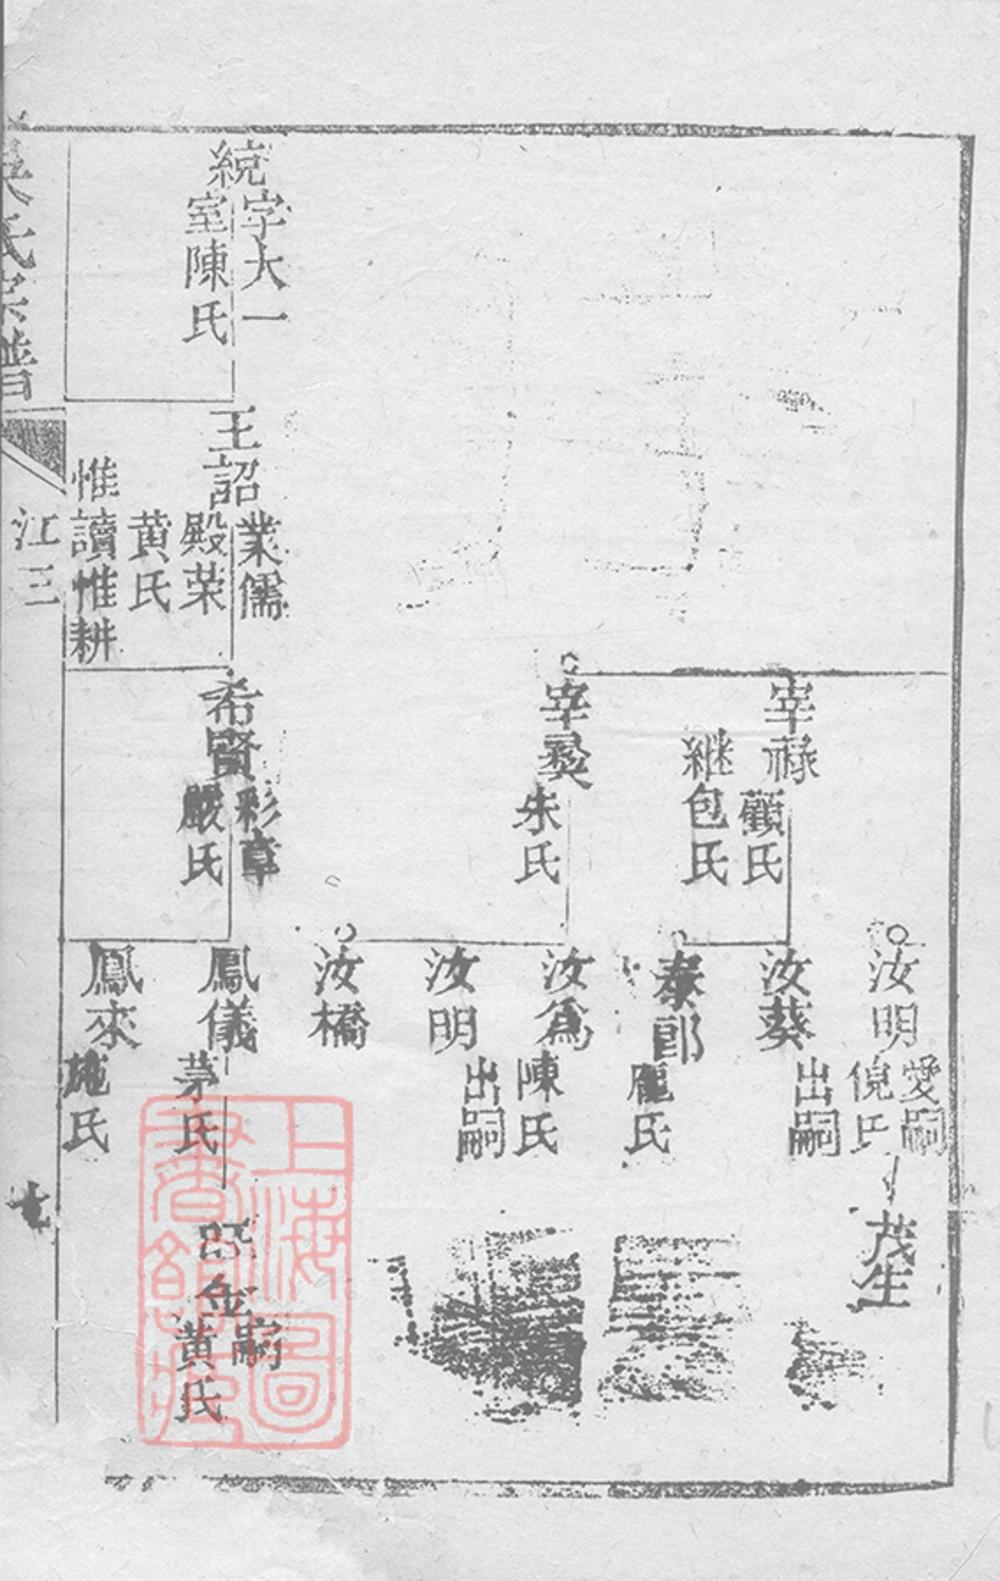 統
字大一
室陳氏
王詔
業儒
殿荣
黄氏
惟讀惟耕
宰祿
顧氏
継包氏
宰㷼
朱氏
希賢
彩章
嚴氏
汝明
愛嗣
倪氏
茂生
汝葵
出嗣
泰郎
龐氏
汝為
陳氏
汝明
出嗣
汝橋
鳳儀
茅氏
嗣
黄氏
鳳來
施氏
吳氏宗譜
江三
上海圖書館藏